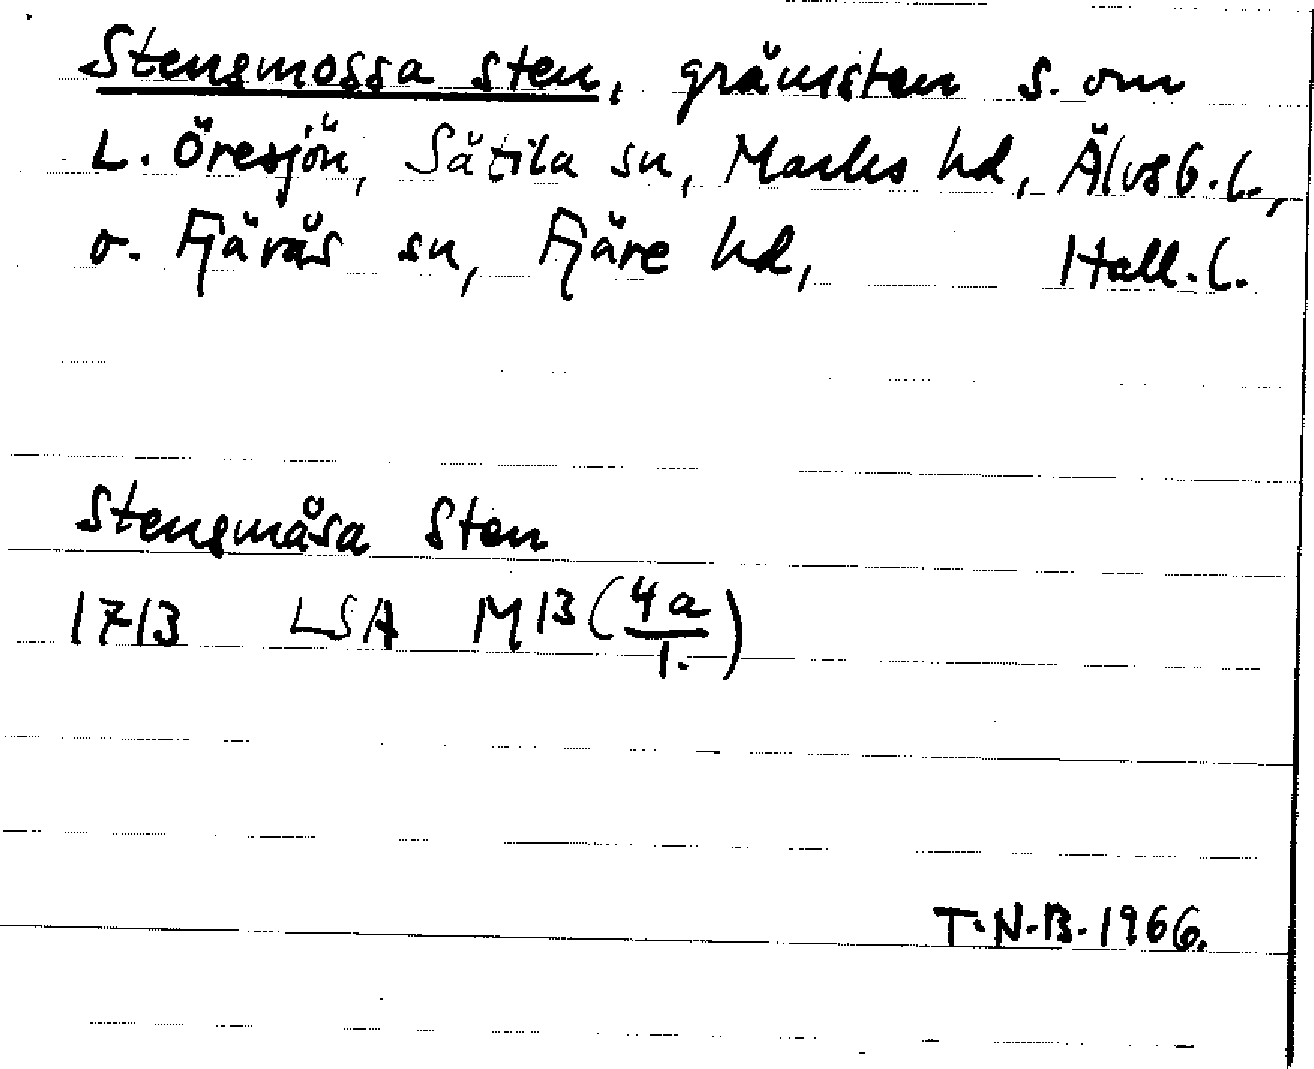 Stensmossa sten, gränssten s. om
L. Öresjön, Sätila sn, Marks hd, Älvsb. l.,
o. Fjärås sn, Fjäre hd, Hall. l.
Stensmåsa Sten
1713 LSA M13 (4a/1.)
T.N.B. 1966.